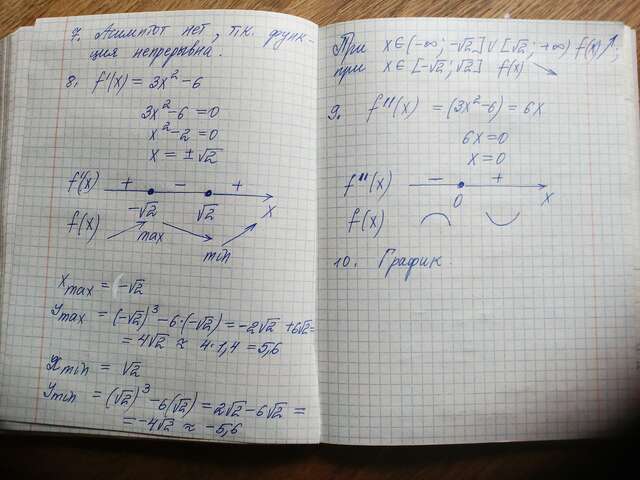 7. Асимптот нет, т.к. функ-
ция непрерывна.
8. f'(x) = 3x² - 6
3x² - 6 = 0
x² - 2 = 0
x = ±√2
f'(x) + - +
-√2 √2 x
f(x) max min
x max = -√2
y max = (-√2)³ - 6·(-√2) = -2√2 + 6√2 =
= 4√2 ≈ 4·1,4 = 5,6
x min = √2
y min = (√2)³ - 6(√2) = 2√2 - 6√2 =
= -4√2 ≈ -5,6
При x ∈ (-∞; -√2] ∪ [√2; +∞) f(x) ↗;
при x ∈ [-√2; √2] f(x) ↘
9. f''(x) = (3x² - 6) = 6x
6x = 0
x = 0
f''(x) - +
0 x
f(x)
10. График.